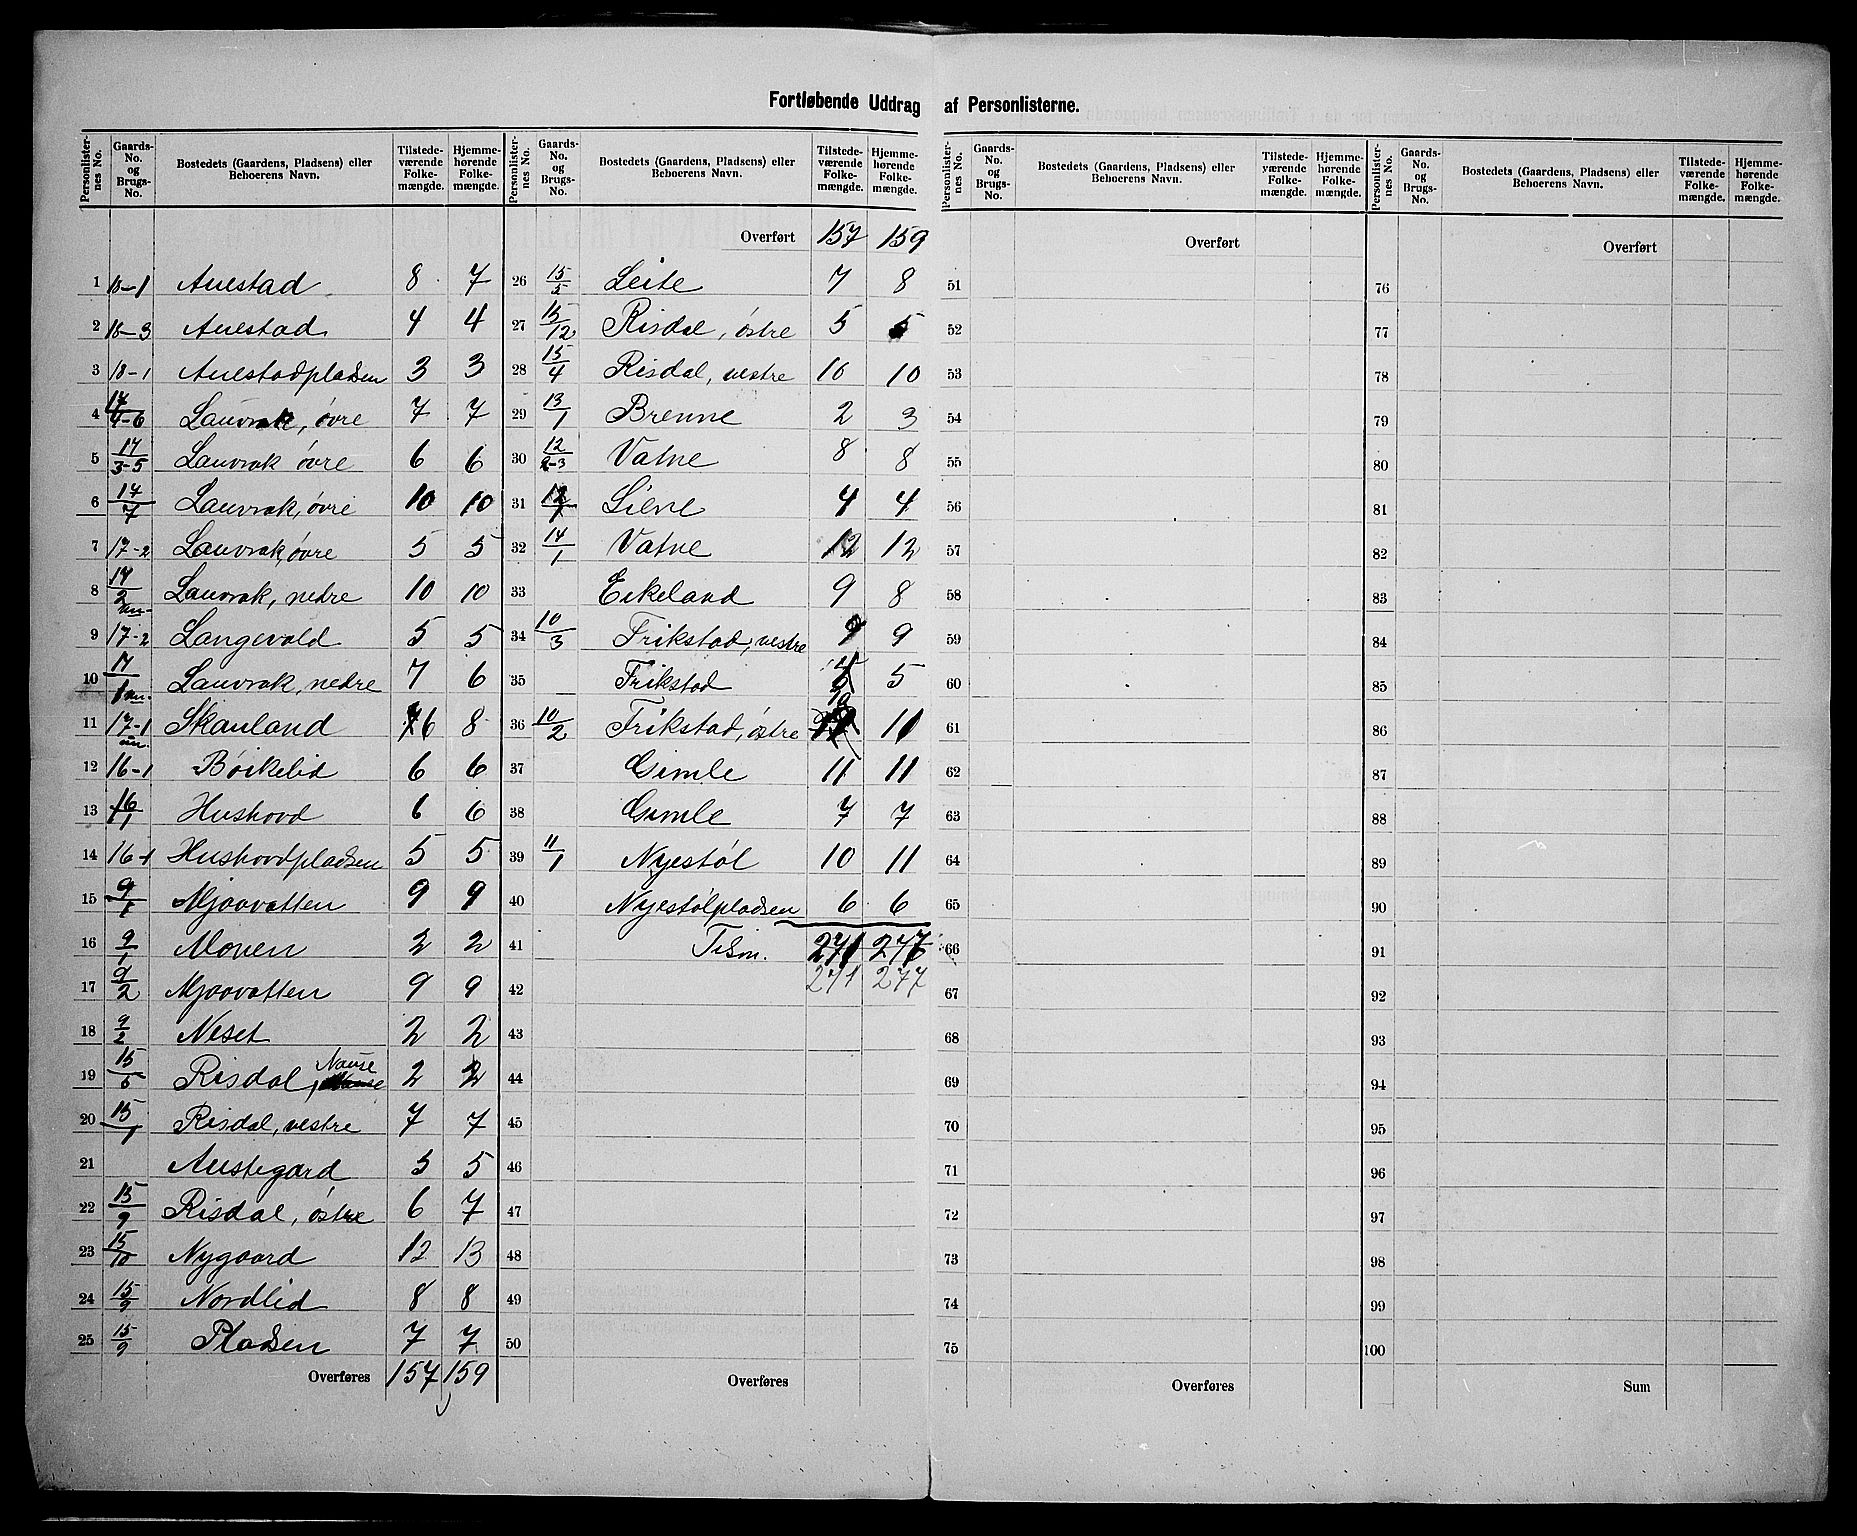 Fortløbende Uddrag af Personlisterne.
Personlisternes No. | Gaards-No. og Brugs-No. | Bostedets (Gaardens, Pladsens) eller Beboerens Navn. | Tilstedeværende Folkemængde. | Hjemmehørende Folkemængde.
1 18-1 Auestad 8 7
2 18-3 Auestad 4 4
3 18-1 Auestadpladsen 3 3
4 17/4-6 Lauvrak, øvre 7 7
5 17/3-5 Lauvrak øvre 6 6
6 17/7 Lauvrak, øvre 10 10
7 17-2 Lauvrak, øvre 5 5
8 17/2 Lauvrak, nedre 10 10
9 17-2 Langevold 5 5
10 17/1 Lauvrak, nedre 7 6
11 17-1 Skauland 6 8
12 16-1 Bøikelid 6 6
13 16/1 Hushovd 6 6
14 16-1 Hushovdpladsen 5 5
15 9/1 Mjaavatten 9 9
16 9/1 Moven 2 2
17 9/2 Mjaavatten 9 9
18 9/2 Neset 2 2
19 15/5 Risdal, Nause 2 2
20 15/1 Risdal, vestre 7 7
21 Austegard 5 5
22 15/9 Risdal, østre 6 7
23 15/10 Nygaard 12 13
24 15/9 Nordlid 8 8
25 15/9 Pladsen 7 7
Overføres 157 159
Personlisternes No. | Gaards-No. og Brugs-No. | Bostedets (Gaardens, Pladsens) eller Beboerens Navn. | Tilstedeværende Folkemængde. | Hjemmehørende Folkemængde.
Overført 157 159
26 15/5 Leite 7 8
27 15/12 Risdal, østre 5 5
28 15/4 Risdal, vestre 10 10
29 13/1 Brenne 2 3
30 12/2-3 Vatne 8 8
31 12/1 Liene 4 4
32 14/1 Vatne 12 12
33 Eikeland 9 8
34 10/3 Frikstad, vestre 9 9
35 Frikstad 5
36 10/2 Frikstad, østre 11
37 Gimle 11 11
38 Gimle 7 7
39 11/1 Nyestøl 10 11
40 Nyestølpladsen 6 6
41 Tilsm. 271 277
42 271 277
43
44
45
46
47
48
49
50
Overføres
Personlisternes No. | Gaards-No. og Brugs-No. | Bostedets (Gaardens, Pladsens) eller Beboerens Navn. | Tilstedeværende Folkemængde. | Hjemmehørende Folkemængde.
Overført
51
52
53
54
55
56
57
58
59
60
61
62
63
64
65
66
67
68
69
70
71
72
73
74
75
Overføres
Personlisternes No. | Gaards-No. og Brugs-No. | Bostedets (Gaardens, Pladsens) eller Beboerens Navn. | Tilstedeværende Folkemængde. | Hjemmehørende Folkemængde.
Overført
76
77
78
79
80
81
82
83
84
85
86
87
88
89
90
91
92
93
94
95
96
97
98
99
100
Sum